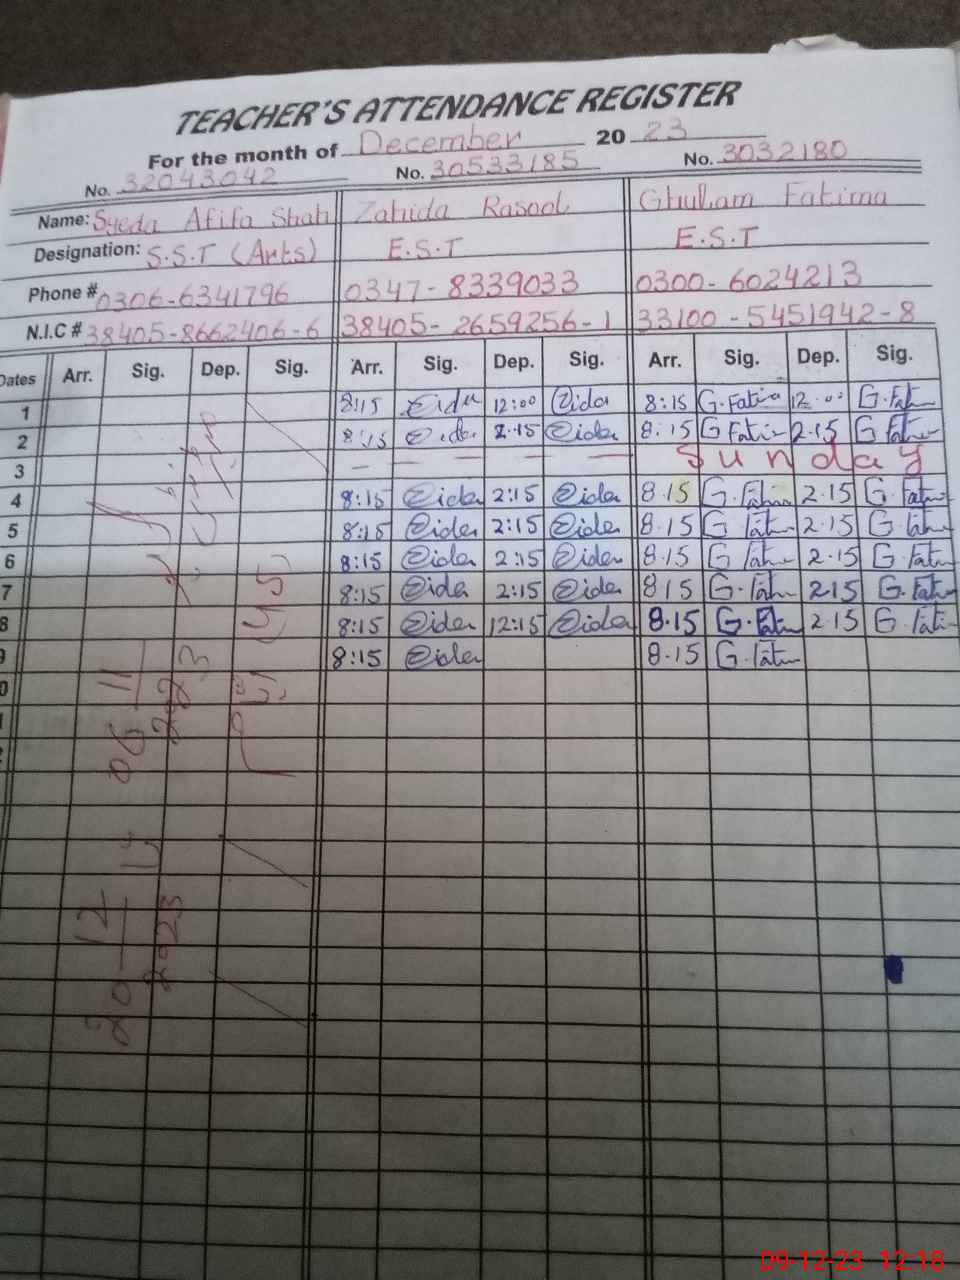 TEACHER'S ATTENDANCE REGISTER
For the month of December 20 23
No. 32043042 No. 30533185 No. 3032180
Name: Syeda Afifa Shah Zahida Rasool Ghulam Fatima
Designation: S.S.T (Arts) E.S.T E.S.T
Phone # 0306-6341796 0347-8339033 0300-6024213
N.I.C # 38405-8662406-6 38405-2659256-1 33100-5451942-8
Dates Arr. Sig. Dep. Sig. Arr. Sig. Dep. Sig. Arr. Sig. Dep. Sig.
1 8:15 Zida 12:00 Zida 8:15 G.Fatima 12.00 G.Fatima
2 8:15 Zida 2:15 Zida 8:15 G Fatima 2.15 G Fatima
3 Sunday
4 8:15 Zida 2:15 Zida 8.15 G.Fatima 2.15 G.Fatima
5 8:15 Zida 2:15 Zida 8.15 G Fatima 2.15 G Fatima
6 8:15 Zida 2:15 Zida 8.15 G Fatima 2.15 G.Fatima
7 8:15 Zida 2:15 Zida 8 15 G.Fatima 215 G.Fatima
8 8:15 Zida 12:15 Zida 8.15 G.Fatima 2.15 G.Fatima
9 8:15 Zida 8.15 G.Fatima
06 11 2023
20 12 2023
09-12-23 12:18